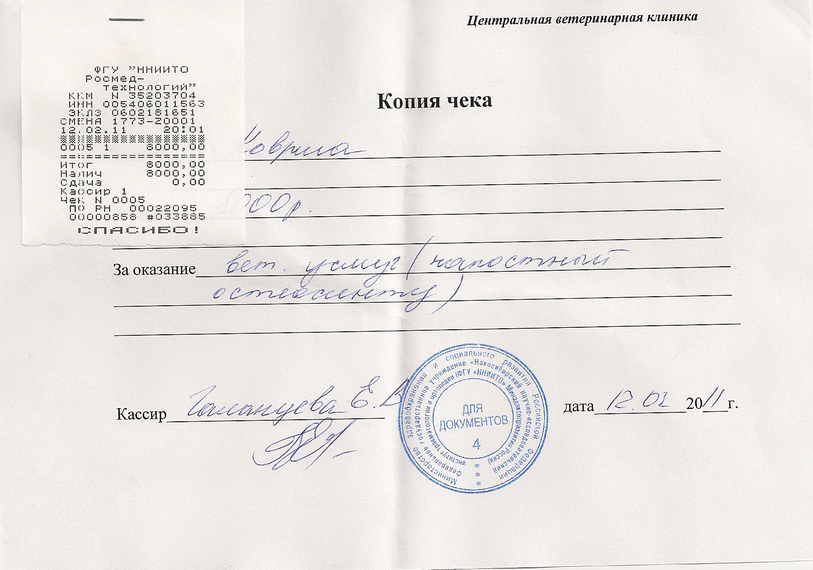 Центральная ветеринарная клиника
ФГУ "ННИИТО
Росмед-
технологий"
ККМ N 35203704
ИНН 005406011563
ЭКЛЗ 0602181651
СМЕНА 1773-Z0001
12.02.11 20:01
0005 1 8000,00
Итог 8000,00
Налич 8000,00
Сдача 0,00
Кассир 1
Чек N 0005
ПО РН 00022095
00000858 #033885
СПАСИБО!
Копия чека
000р.
За оказание вет. услуг (накостный
остеосинтез)
Кассир Галанцева Е. В
Министерство здравоохранения и социального развития Российской Федерации
Федеральное государственное учреждение «Новосибирский научно-исследовательский
институт травматологии и ортопедии (ФГУ «ННИИТО» Минздравсоцразвития России)
ДЛЯ
ДОКУМЕНТОВ
4
дата 12.02 2011 г.